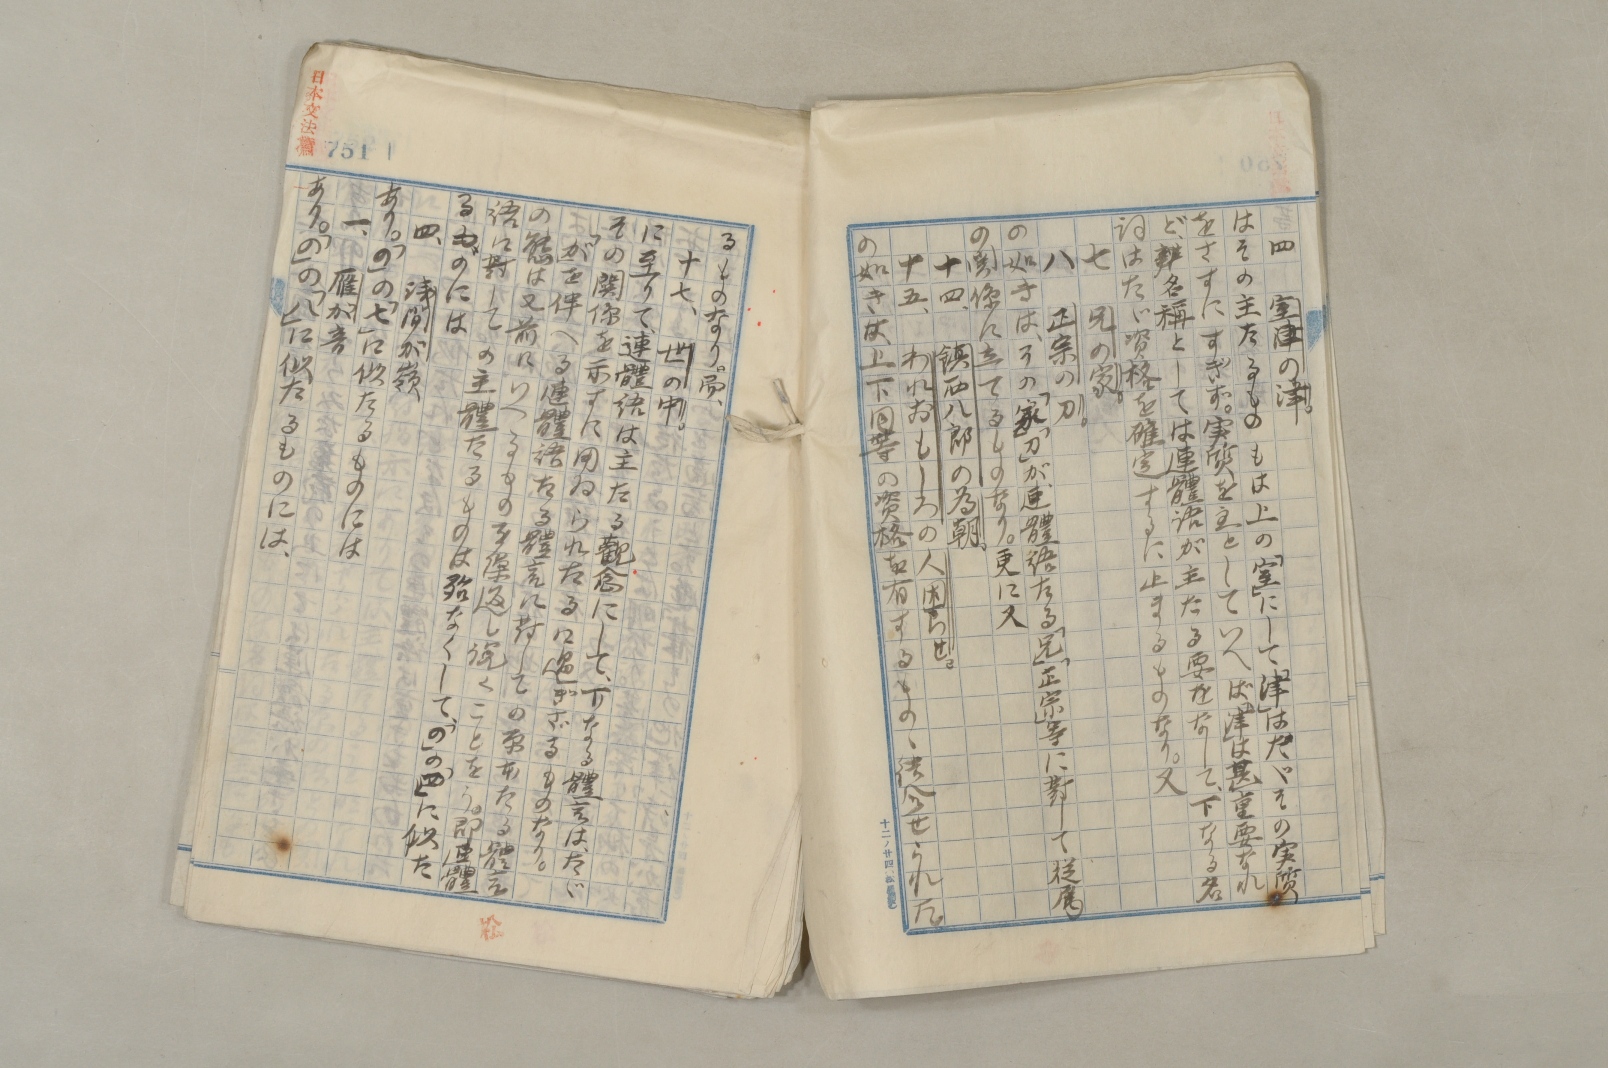 四 室津の津。
はその主たるものもは上の「室」にして「津」はたゞその実質
をさすにすぎず。実質を主としていへば「津」は甚重要なれ
ど、名稱としては連體語が主たる要をなして、下なる名
詞はたゞ資格を確定するに止まるものなり。又
七 兄の家。
八 正宗の刀。
の如きは、その「家」「刀」が連體語たる「兄」「正宗」等に對して従属
の関係に立てるものなり。更に又
十四、鎮西八郎の為朝、
十五、われおもしろの人
の如きは上下同等の資格を有するもの、
るものなり。
十七、世の中。
に至りて連體語は主たる觀念にして、下なる體言は、たゞ
その関係を示すに用ゐられたるに過ぎざるものなり。
「が」を伴へる連體語たる體言に對しての
の態は又前にいへるものを繰返し説くことを
語に對しての主體たるものは殆なくして、「の」の「四」に似た
るものには
四、浅間が嶺
あり。「の」の「七」に似たるものには
一、雁が音
あり。「の」の「八」に似たるものには、
751
日本文法